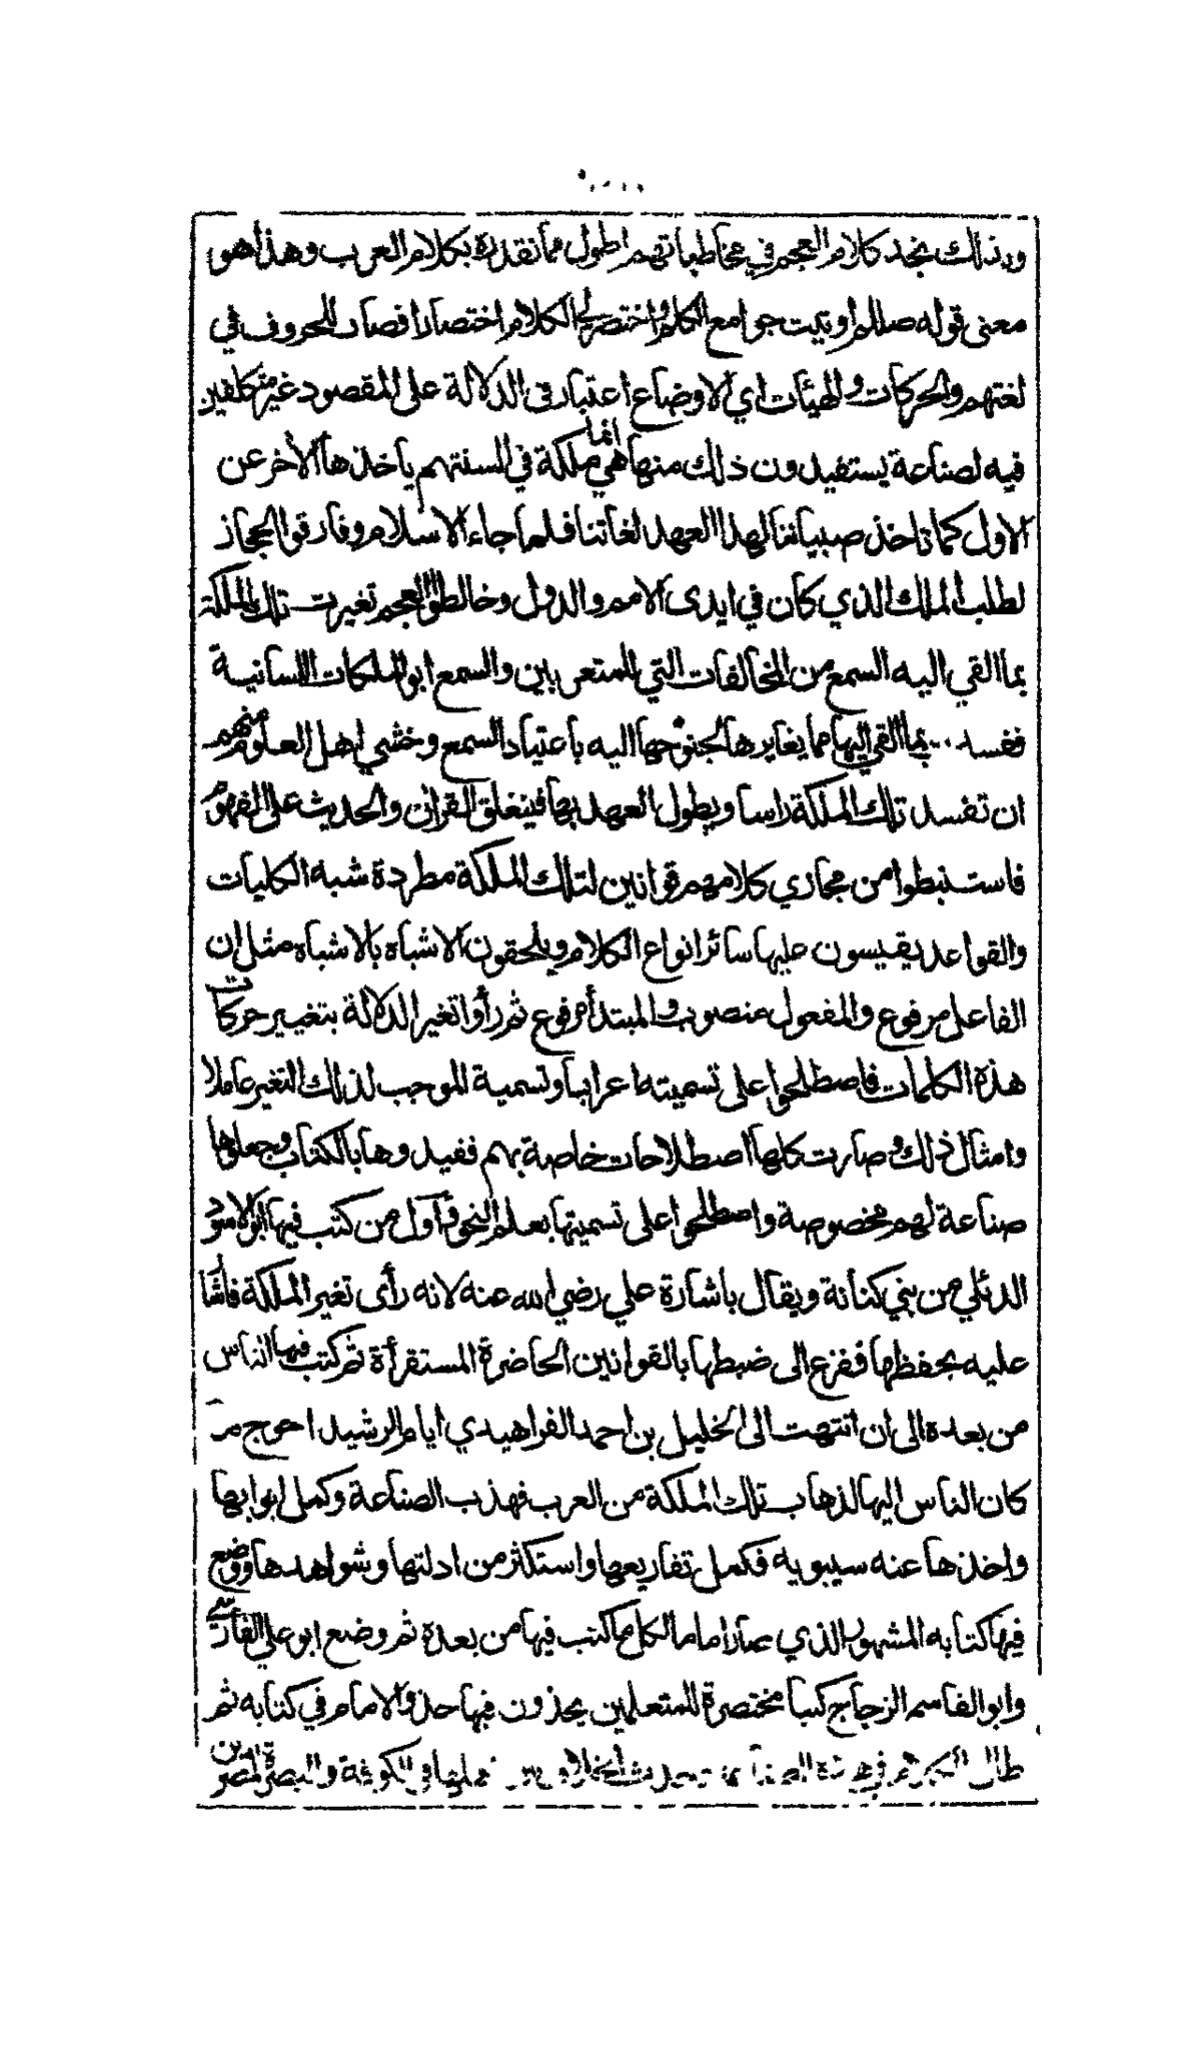 وبذلك نجد كلام العجم في مخاطباتهم اطول مما نقدره بكلام العرب وهذا هو
معنى قوله صللم اوتيت جوامع الكلم واختصر لي الكلام اختصارا فصار للحروف في
لغتهم والحركات والهيئات اي الاوضاع اعتبار في الدلالة على المقصود غير متكلفين
فيه لصناعة يستفيدون ذلك منها انما هي ملكة في السنتهم ياخذها الآخر عن
الاول كما تاخذ صبياننا لهذا العهد لغاتنا فلما جاء الاسلام وفارقوا الحجاز
لطلب الملك الذي كان في ايدى الامم والدول وخالطوا العجم تغيرت تلك الملكة
بما القي اليه السمع من المخالفات التي للمتعربين والسمع ابو الملكات اللسانية
ففسد بما القي اليها مما يغايرها لجنوحها اليه باعتياد السمع وخشي اهل العلوم منهم
ان تفسد تلك الملكة راسا ويطول العهد بها فينغلق القرآن والحديث على المفهوم
فاستنبطوا من مجاري كلامهم قوانين لتلك الملكة مطردة شبه الكليات
والقواعد يقيسون عليها سائر انواع الكلام ويلحقون الاشباه بالاشباه مثل ان
الفاعل مرفوع والمفعول منصوب والمبتدأ مرفوع ثم رأوا تغير الدلالة بتغيير حركات
هذه الكلمات فاصطلحوا على تسميته اعرابا وتسمية الموجب لذلك التغير عاملا
وامثال ذلك وصارت كلها اصطلاحات خاصة بهم فقيدوها بالكتاب وجعلوها
صناعة لهم مخصوصة واصطلحوا على تسميتها بعلم النحو واول من كتب فيها ابو الاسود
الدئلي من بني كنانة ويقال باشارة علي رضي الله عنه لانه رأى تغير الملكة فاشا
عليه بحفظها ففزع الى ضبطها بالقوانين الحاضرة المستقرأة ثم كتب فيها الناس
من بعده الى ان انتهت الى الخليل بن احمد الفراهيدي ايام الرشيد احوج م
كان الناس اليها لذهاب تلك الملكة من العرب فهذب الصناعة وكمل ابوابها
واخذها عنه سيبويه فكمل تفاريعها واستكثر من ادلتها وشواهدها ووضع
فيها كتابه المشهور الذي صار اماما لكل ما كتب فيها من بعده ثم وضع ابو علي الفارسي
وابو القاسم الزجاج كتبا مختصرة للمتعلمين يحذون فيها حذو الامام في كتابه ثم
طال الكلام في هذه الصناعة وحدث الخلاف بين اهلها في الكوفة والبصرة المصرين